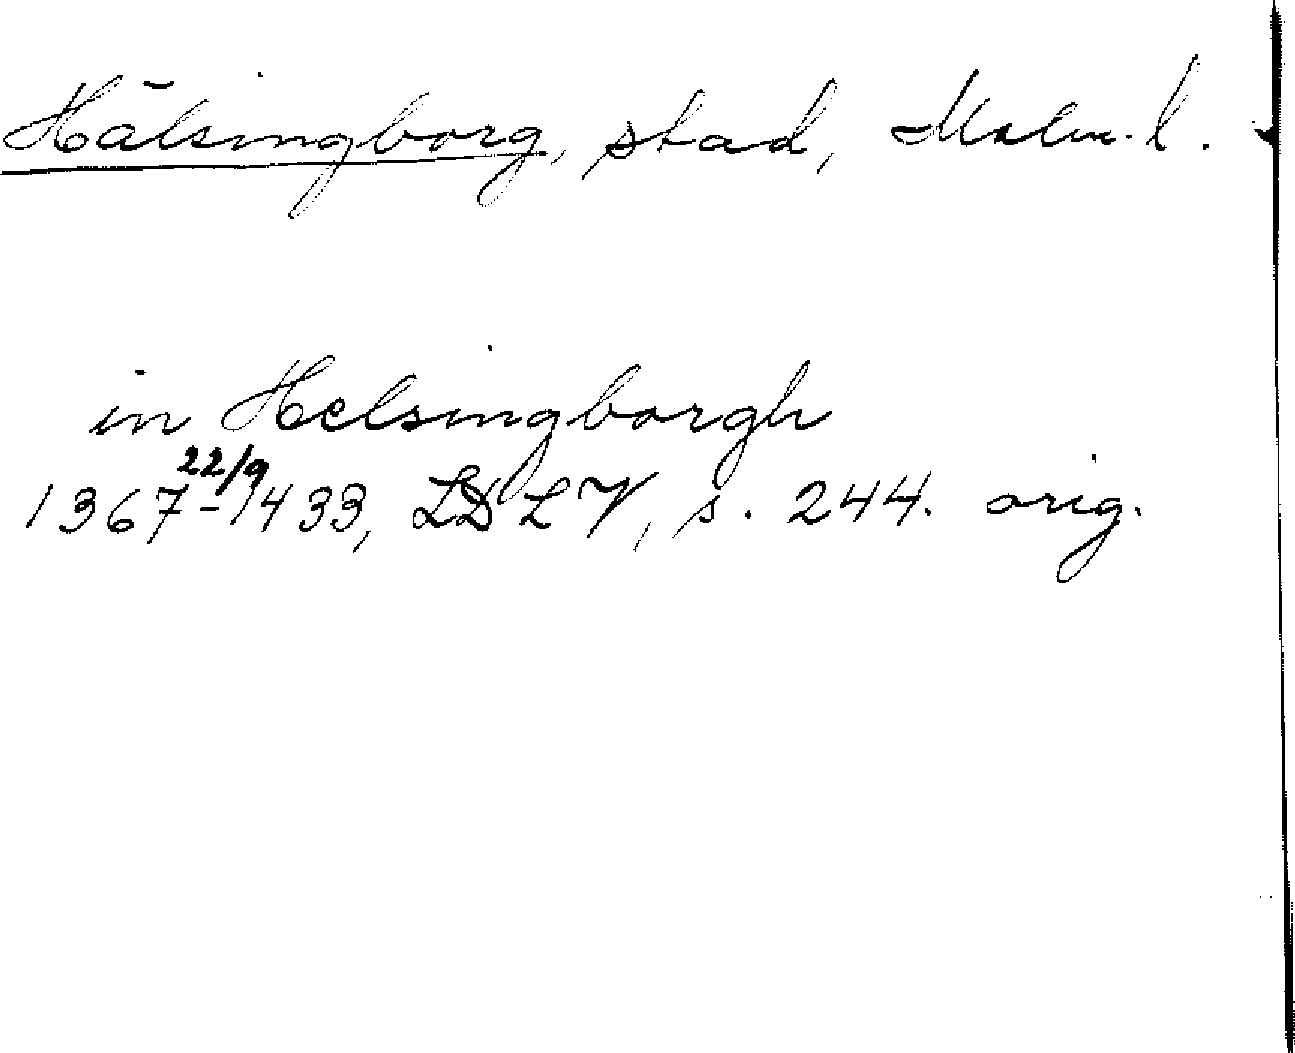 Hälsingborg, stad, Malm. l.
in Helsingborgh
1367 22/9 -1433, LDLV, s. 244. orig.